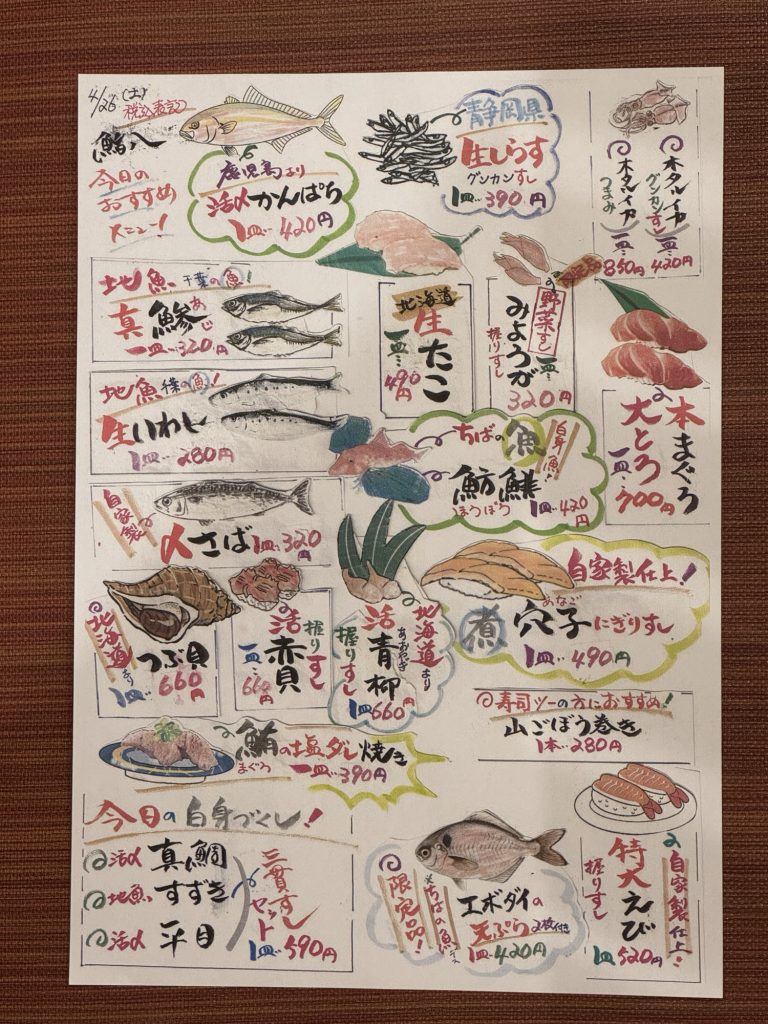 4/26 (土)
税込表記
鮨八
今日の
おすすめ
メニュー!
鹿児島より
活〆かんぱち
1皿…420円
静岡県
生しらす
グンカンすし
1皿…390円
ホタルイカ
グンカンすし
一皿…420円
ホタルイカ
つまみ
一皿…850円
地魚 千葉の魚!
真鯵
あじ
一皿…320円
北海道
生たこ
一皿…490円
野菜すし
みょうが
握りすし
一皿…320円
本まぐろ
大とろ
一皿…700円
地魚 千葉の魚!
生いわし
1皿…280円
ちばの魚
白身魚!
魴鮄
ほうぼう
1皿…420円
自家製
〆さば 1皿…320円
北海道より
つぶ貝
1皿…660円
活赤貝
握りすし
一皿…660円
北海道より
活青柳
あおやぎ
握りすし
1皿660円
自家製仕上!
煮穴子にぎりすし
あなご
1皿…490円
寿司ツーの方におすすめ!
山ごぼう巻き
1本…280円
鮪の塩ダレ焼き
まぐろ
一皿…390円
今日の白身づくし!
活〆 真鯛
地魚 すずき
活〆 平目
三貫すし
セット
1皿…590円
限定品!
※ちばの魚デス
エボダイの
天ぷら 2枚付き
1皿…420円
自家製仕上!
特大えび
握りすし
1皿520円